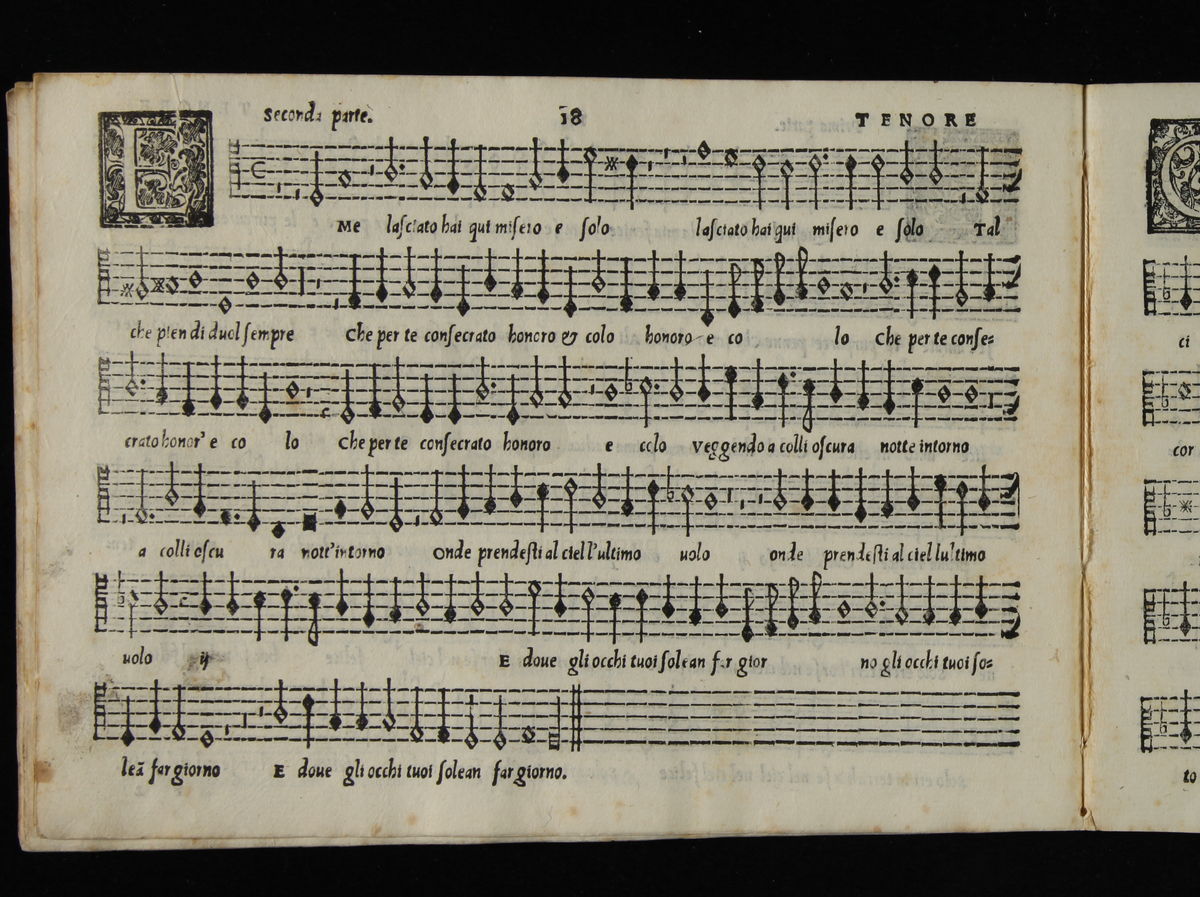 Seconda parte. 18 TENORE
E ME lasciato hai qui misero e solo lasciato hai qui misero e solo Tal
che pien di duol sempre Che per te consecrato honoro & colo honoro e co lo Che per te conse=
crato honor' e co lo Che per te consecrato honoro e colo veggendo a colli oscura notte intorno
a colli oscu ra nott'intorno Onde prendesti al ciel l'ultimo uolo onde prendesti al ciel lultimo
uolo ij E doue gli occhi tuoi solean far gior no gli occhi tuoi so=
leā far giorno E doue gli occhi tuoi solean far giorno.
ci
cor
to